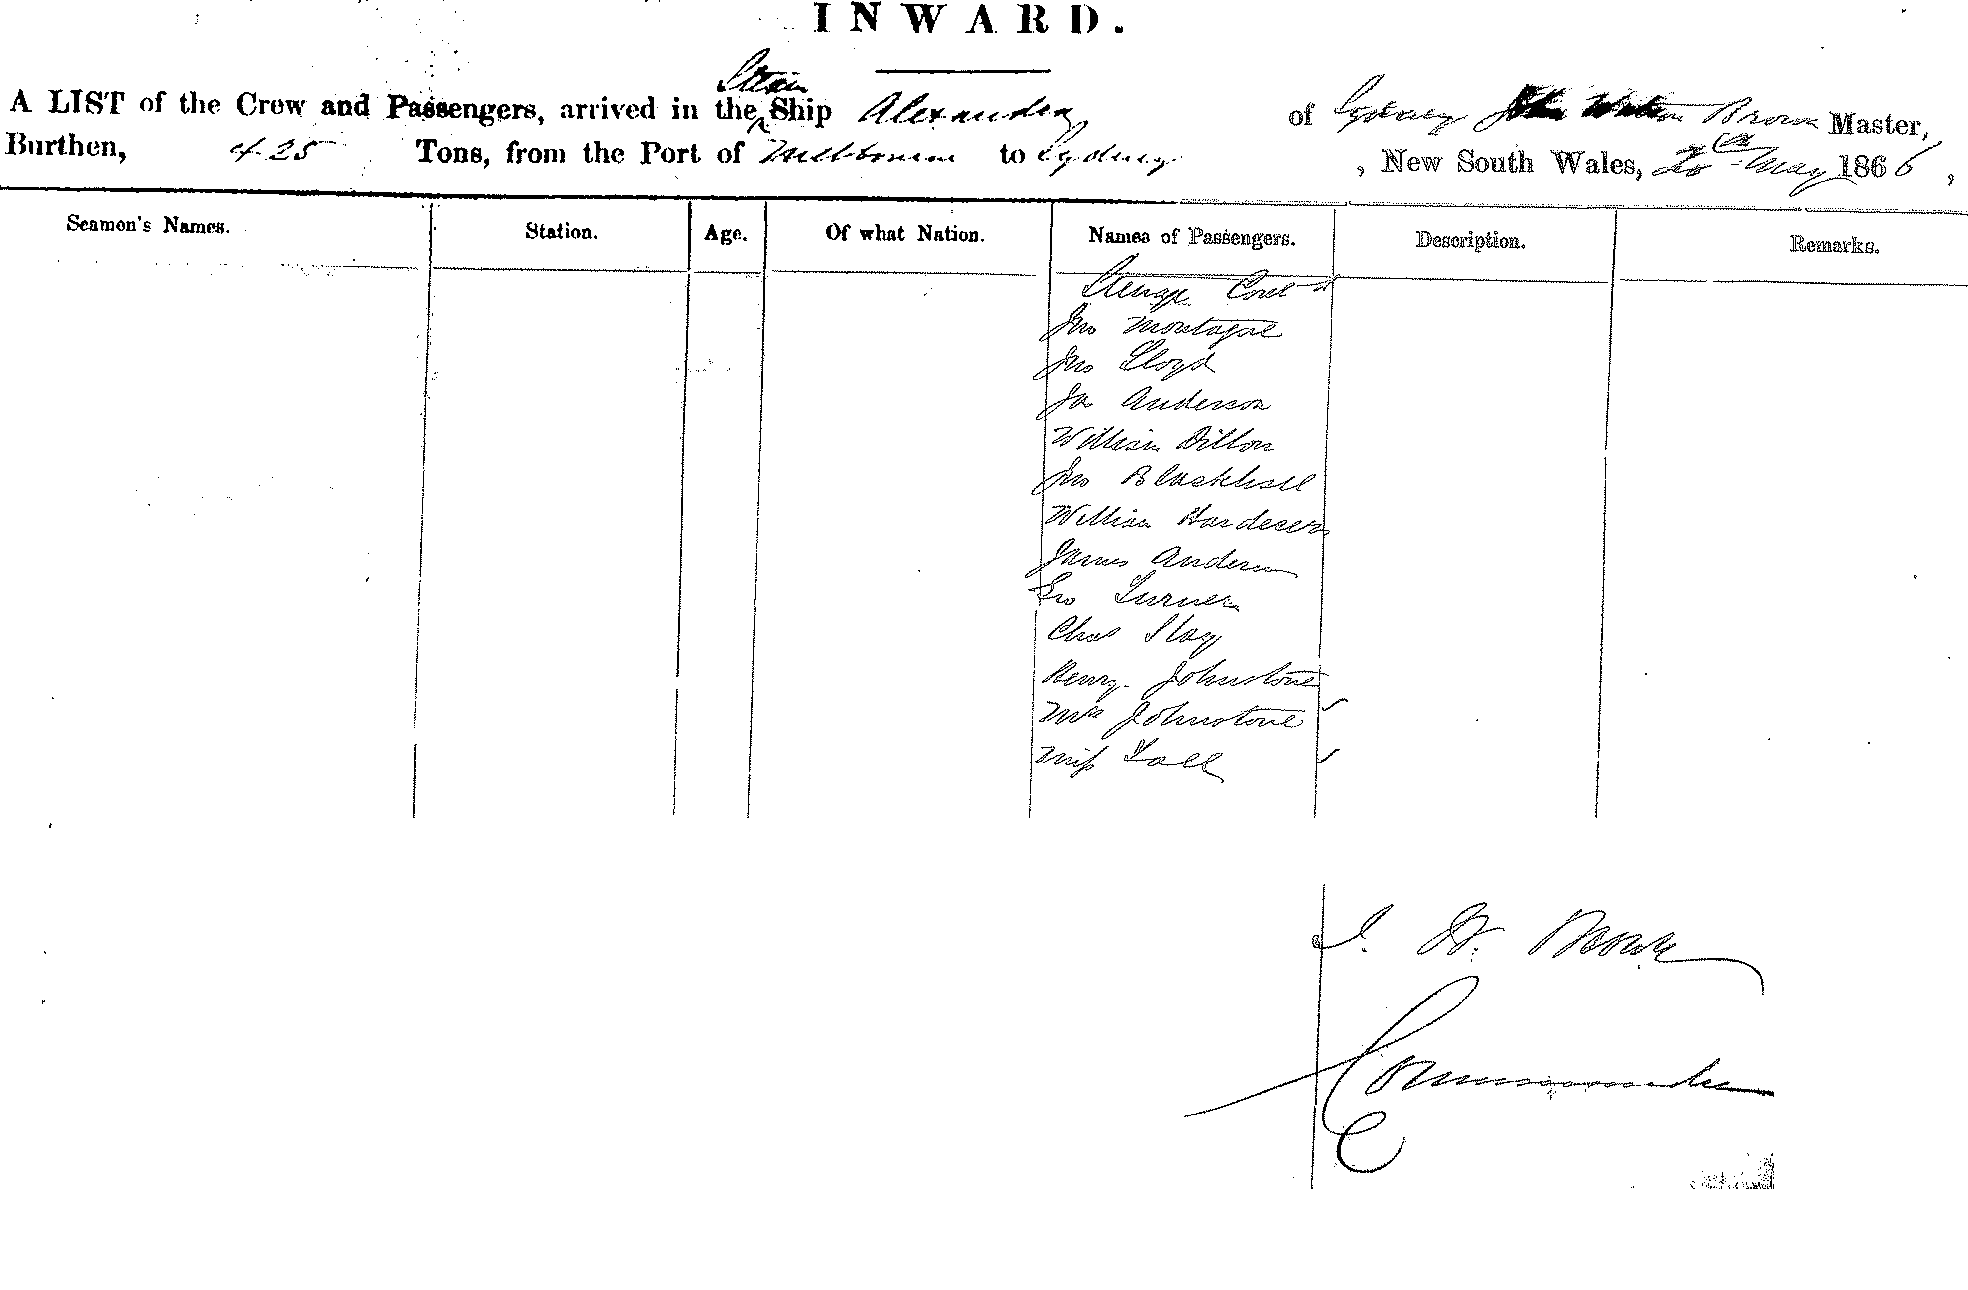 INWARD.
A LIST of the Crew and Passengers, arrived in the Steam Ship Alexandra of Sydney John Watson Brown Master,
Burthen, 425 Tons, from the Port of Melbourne to Sydney , New South Wales, 20th May 1866,
Seamen's Names. Station. Age. Of what Nation. Names of Passengers. Description. Remarks.
Steerage Contd
Jno Montague
Jno Lloyd
Js Anderson
William Dillon
Jno Blackhall
William
James Anderson
Geo Turner
Chas Hay
Henry Johnstone
Mrs Johnstone
Miss
J. W. Brown
Commander